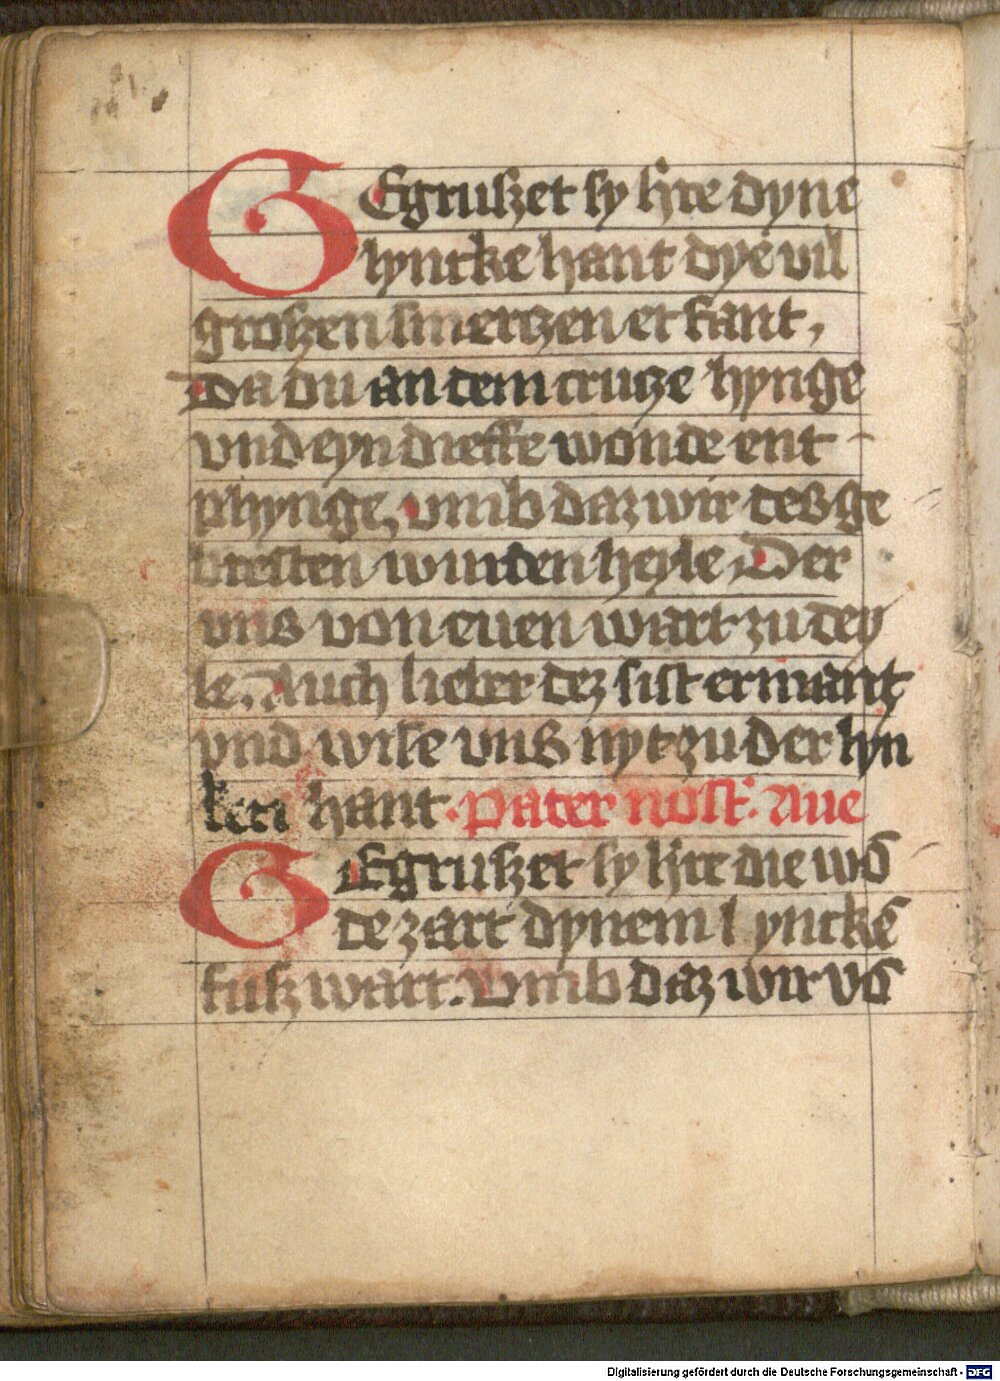 GEgruszet sy h̄re dyne
lyncke hant dye vil
groszen smerczen erkant,
Da du an dem cruцze hynge
vnd eyn dieffe wonde ent
phynge, vmb daz wir des ge
bresten wurden heyle Der
vns von euen wart zu dey
le. Auch lieber dez sist ermant
vnd wise vns nyt zu der lyn
ken hant. Pater nost. Aue
GEgruszet sy h̄re die wō
de zart dynem lynckē
fusz wart. vmb daz wir vō
Digitalisierung gefördert durch die Deutsche Forschungsgemeinschaft - DFG